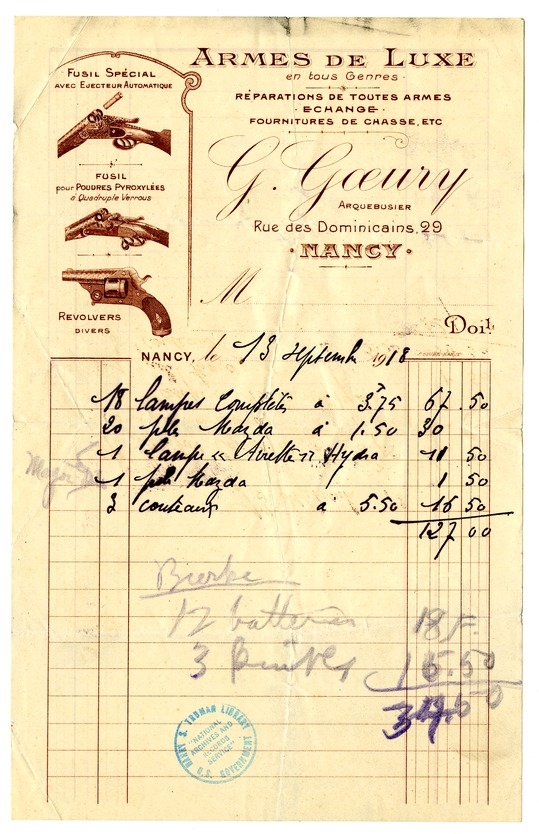 ARMES DE LUXE
en tous Genres
RÉPARATIONS DE TOUTES ARMES
ECHANGE
FOURNITURES DE CHASSE, ETC
G. Gœury
ARQUEBUSIER
Rue des Dominicains, 29
NANCY
FUSIL SPÉCIAL
AVEC EJECTEUR AUTOMATIQUE
FUSIL
pour POUDRES PYROXYLÉES
à Quadruple Verrous
REVOLVERS
DIVERS
M
Doit
NANCY, le 13 Septembre 1918
18 lampes Complètes à 3.75 67.50
20 piles Mazda à 1.50 30
1 lampe Hydra 11 50
1 pile Mazda 1 50
3 couteaux à 5.50 16 50
127 00
12 batteries 18 F.
3 knives 16.50
HARRY S. TRUMAN LIBRARY
"NATIONAL
ARCHIVES AND
RECORDS
SERVICE"
U.S. GOVERNMENT